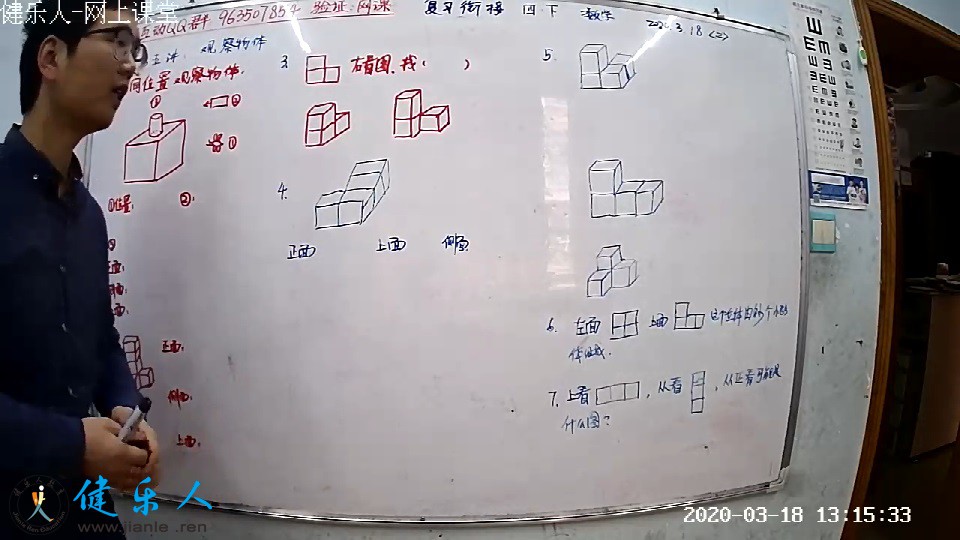 健乐人-网上课堂
互动QQ群 963507854 验证:网课
复习衔接 四下 数学
2020.3.18 (2)
观察物体
位置观察物体.
① ②
①
①位置: ②:
正面:
侧面:
上面:
3. 右看图,找( )
4.
正面 上面 侧面
5.
6. 左面 上面
体组成.
7. 上看 , 从 看 , 从正看可能是
什么图?
健乐人
www.jianle.ren
2020-03-18 13:15:33